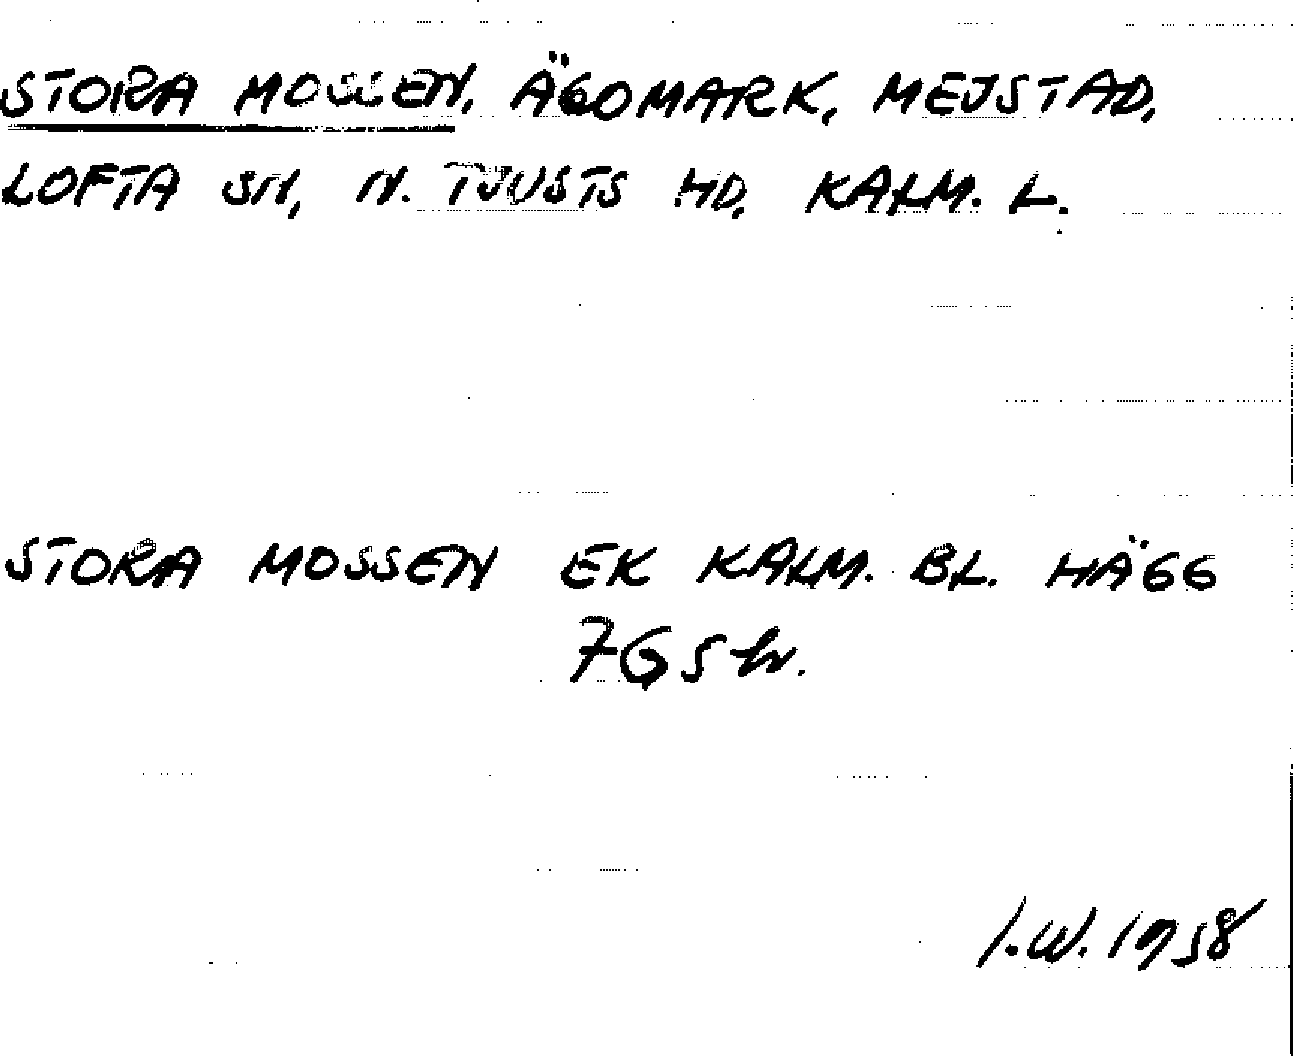 STORA MOSSEN, ÄGOMARK, MEJSTAD,
LOFTA SN, N. TJUSTS HD, KALM. L.
STORA MOSSEN EK KALM. BL. HÄGG
I.W. 1958